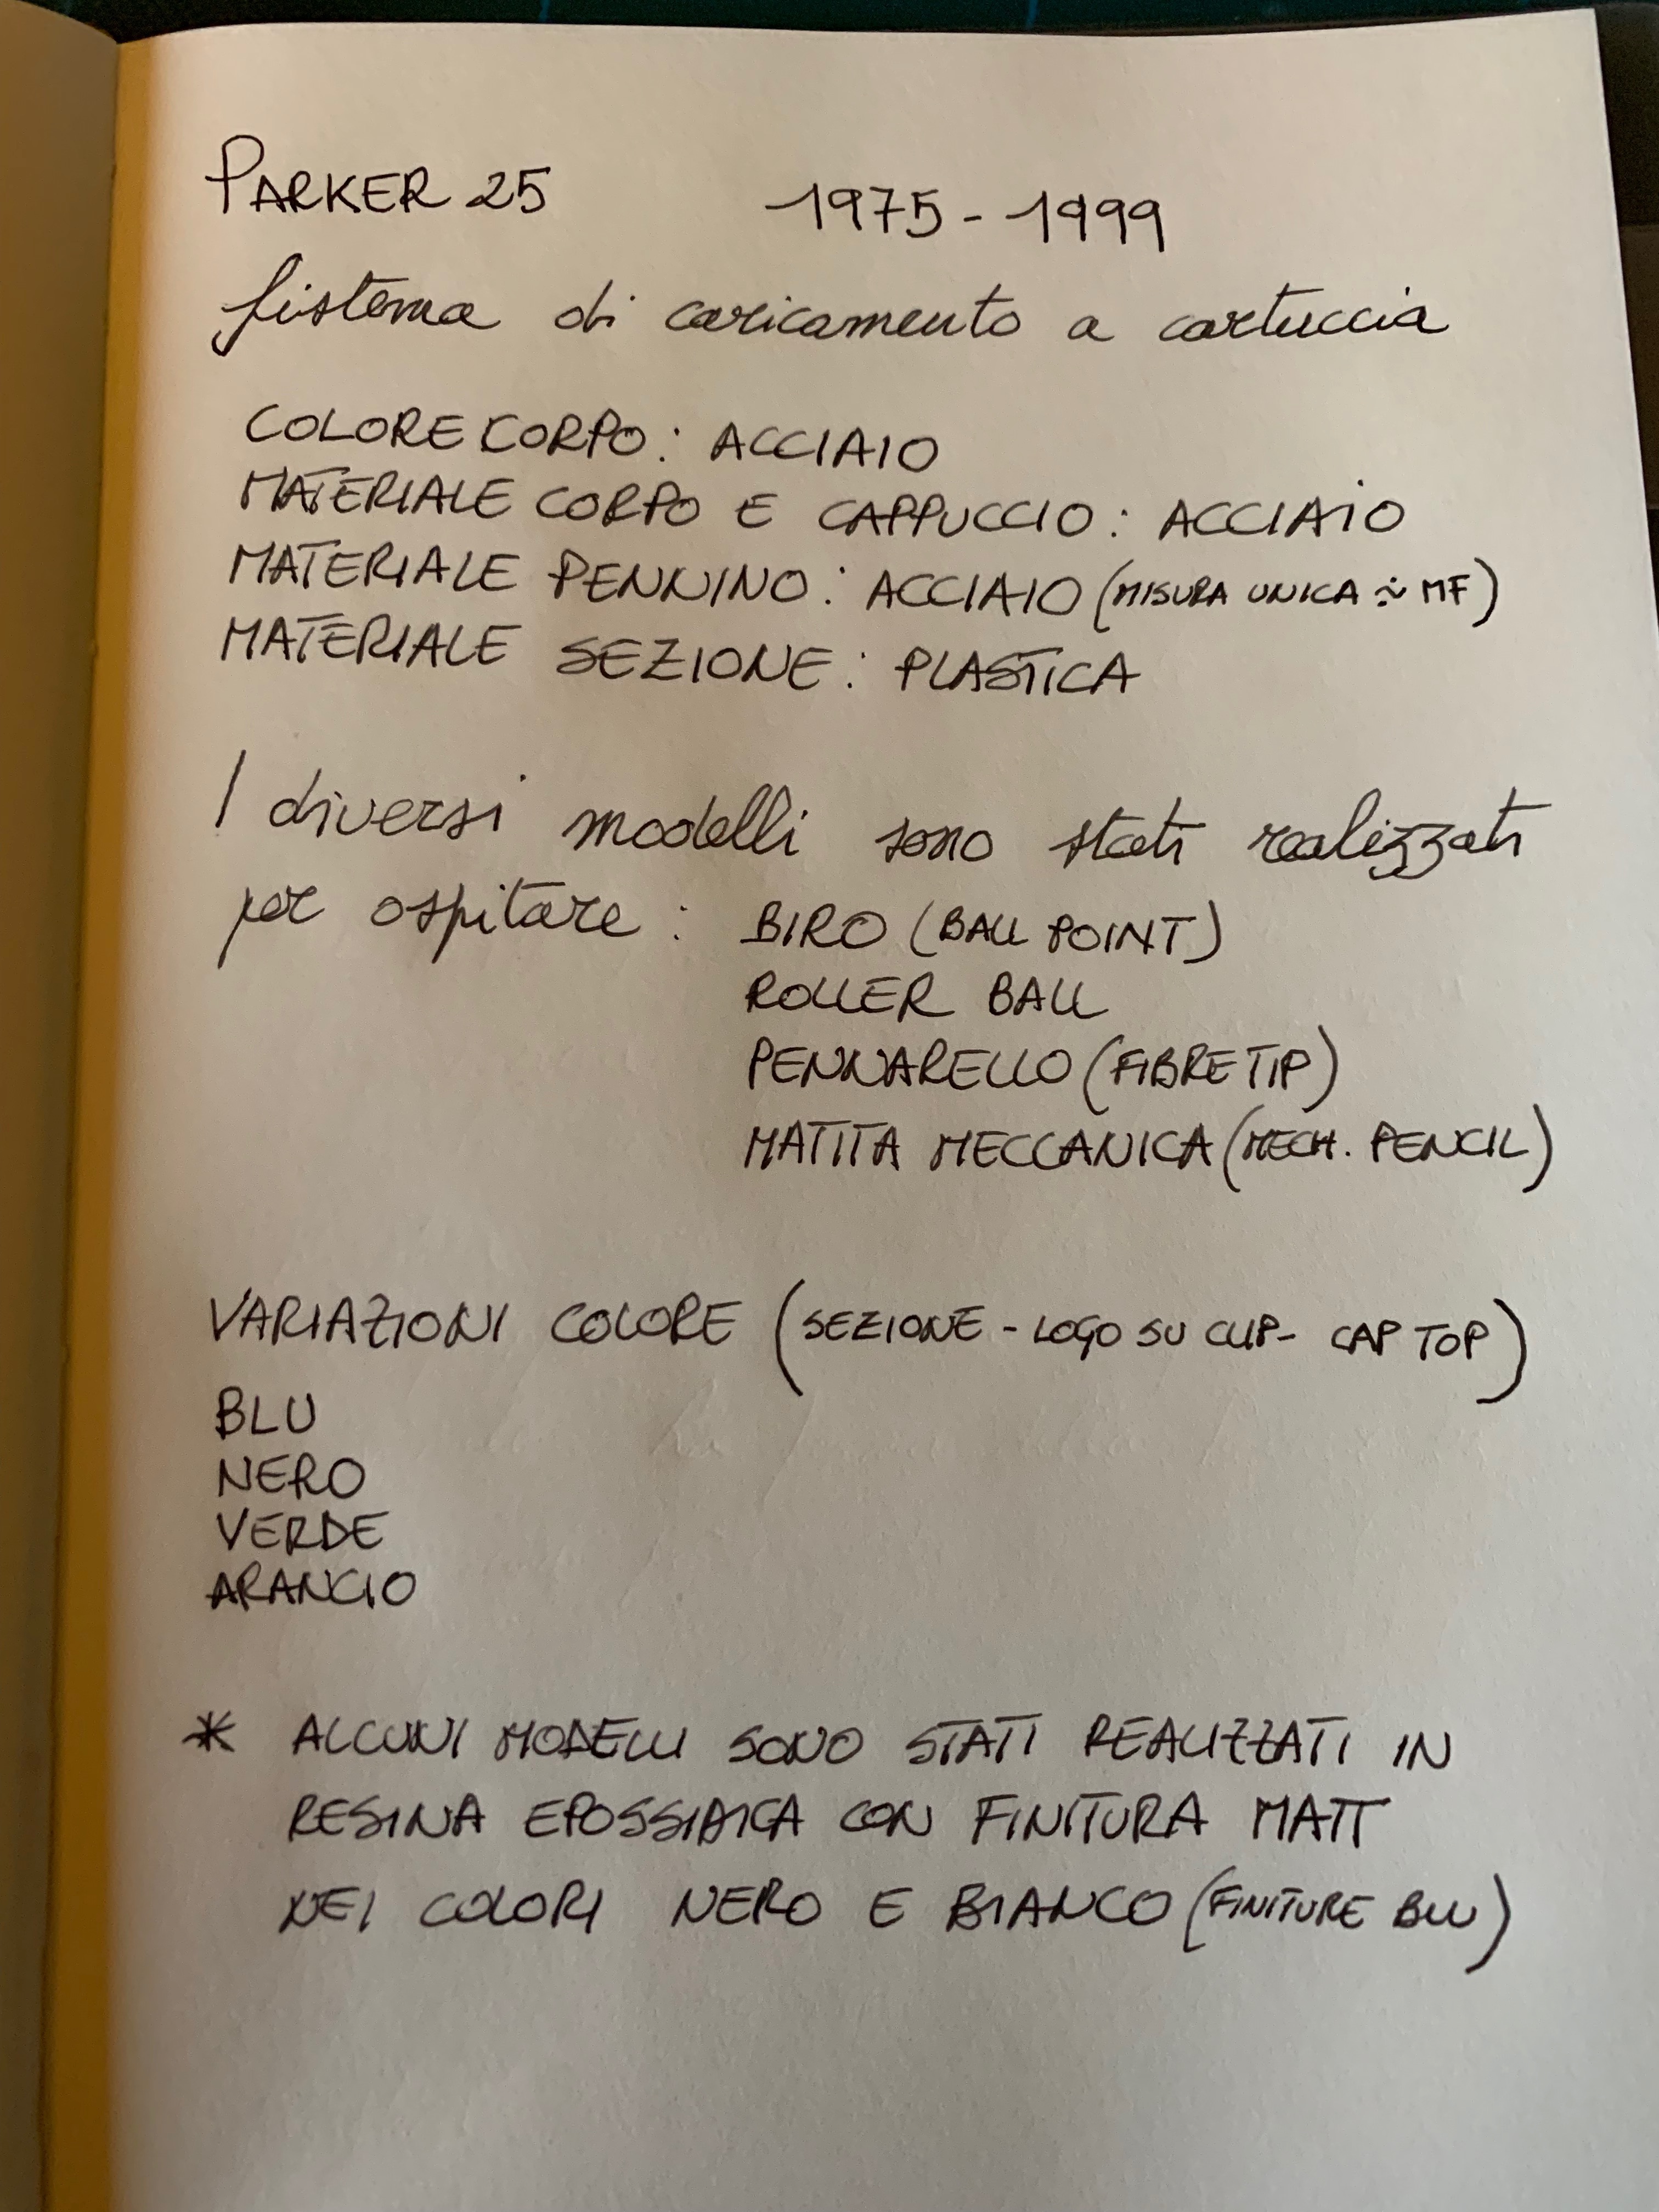 PARKER 25 1975-1999
Sistema di caricamento a cartuccia
COLORE CORPO: ACCIAIO
MATERIALE CORPO E CAPPUCCIO: ACCIAIO
MATERIALE PENNINO: ACCIAIO (MISURA UNICA ∻ MF)
MATERIALE SEZIONE: PLASTICA
I diversi modelli sono stati realizzati
per ospitare: BIRO (BALL POINT)
ROLLER BALL
PENNARELLO (FIBRE TIP)
MATITA MECCANICA (MECH. PENCIL)
VARIAZIONI COLORE (SEZIONE - LOGO SU CLIP - CAP TOP)
BLU
NERO
VERDE
ARANCIO
* ALCUNI MODELLI SONO STATI REALIZZATI IN
RESINA EPOSSIDICA CON FINITURA MATT
NEI COLORI NERO E BIANCO (FINITURE BLU)